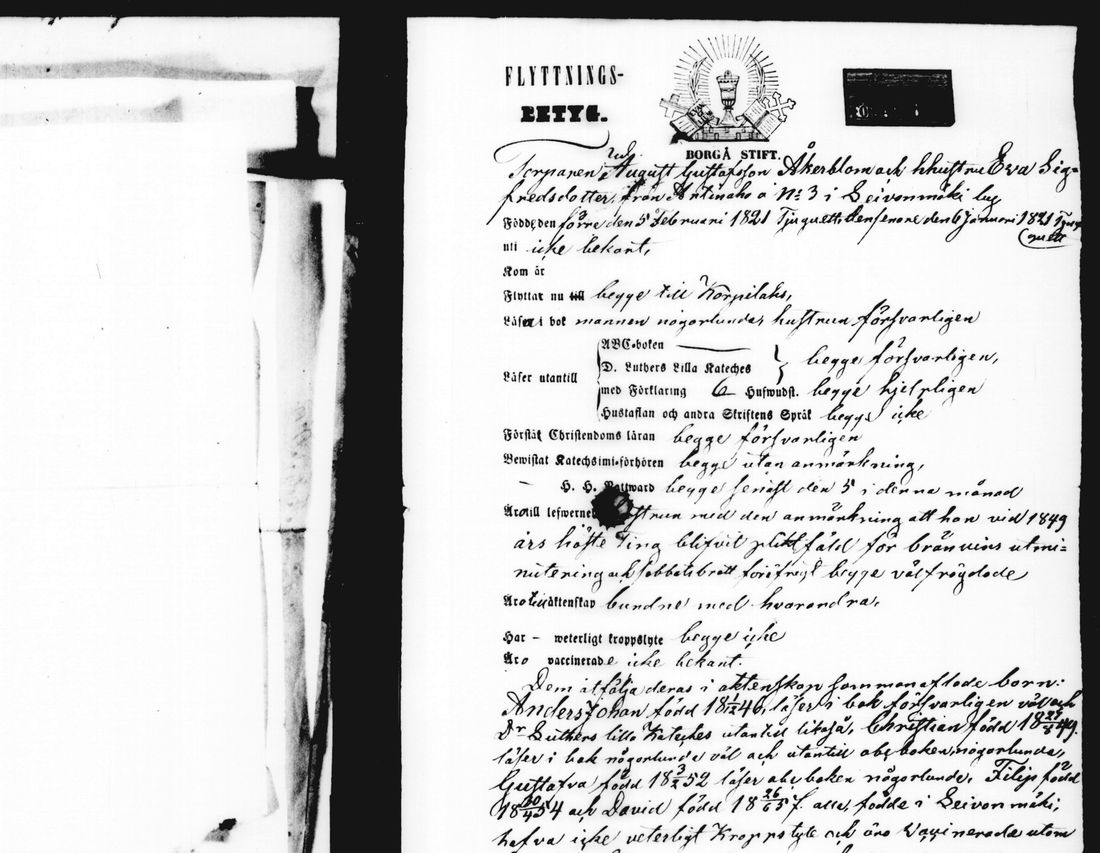 FLYTTNINGS-
BETYG.
BORGÅ STIFT.
Torparen August Gustafsson Åkerblom och hustru Eva Sig-
fredsdotter, från Antinaho å No 3 i Leivonmäki by
Född, den förre den 5 Februari 1821 den senare den 6 Januari 1821
uti icke bekant,
Kom år
Flyttar nu till begge till Korpilaks,
Läser i bok mannen någorlunda, hustrun försvarligen
ABC-boken
Läser utantill D. Luthers Lilla Kateches begge försvarligen,
med Förklaring 6 Hufwudst. begge hjelpligen
Hustaflan och andra Skriftens Språk begge icke
Förstår Christendoms läran begge försvarligen
Bewistat Katechsimi-förhören begge utan anmärkning,
H. H. Nattward begge senast den 5 i denna månad
Äro till lefwernet hustrun med den anmärkning att hon vid 1849
års höste Ting blifvit pliktfäld för bränvins utmi-
nutering och sabbatsbrott för öfrigt begge välfrägdade
Äro till äktenskap bundne med hvarandra,
Har - weterligt kroppslyte begge icke
Äro vaccinerade icke bekant.
Dem åtfölja deras i äktenskap sammanaflade barn:
Anders Johan född 18 1/12 46, läser i bok försvarligen väl och
Dr Luthers lilla Kateches utantill likaså, Christian född 18 27/8 49.
läser i bok någorlunda väl och utantill abc boken någorlunda,
Gustafva född 18 3/2 52 läser abc boken någorlunda, Filip född
18 20/4 54 och David född 18 26/6 57. alla födde i Leivonmäki,
hafva icke veterligt Kroppslyte och äro Vaccinerade utom